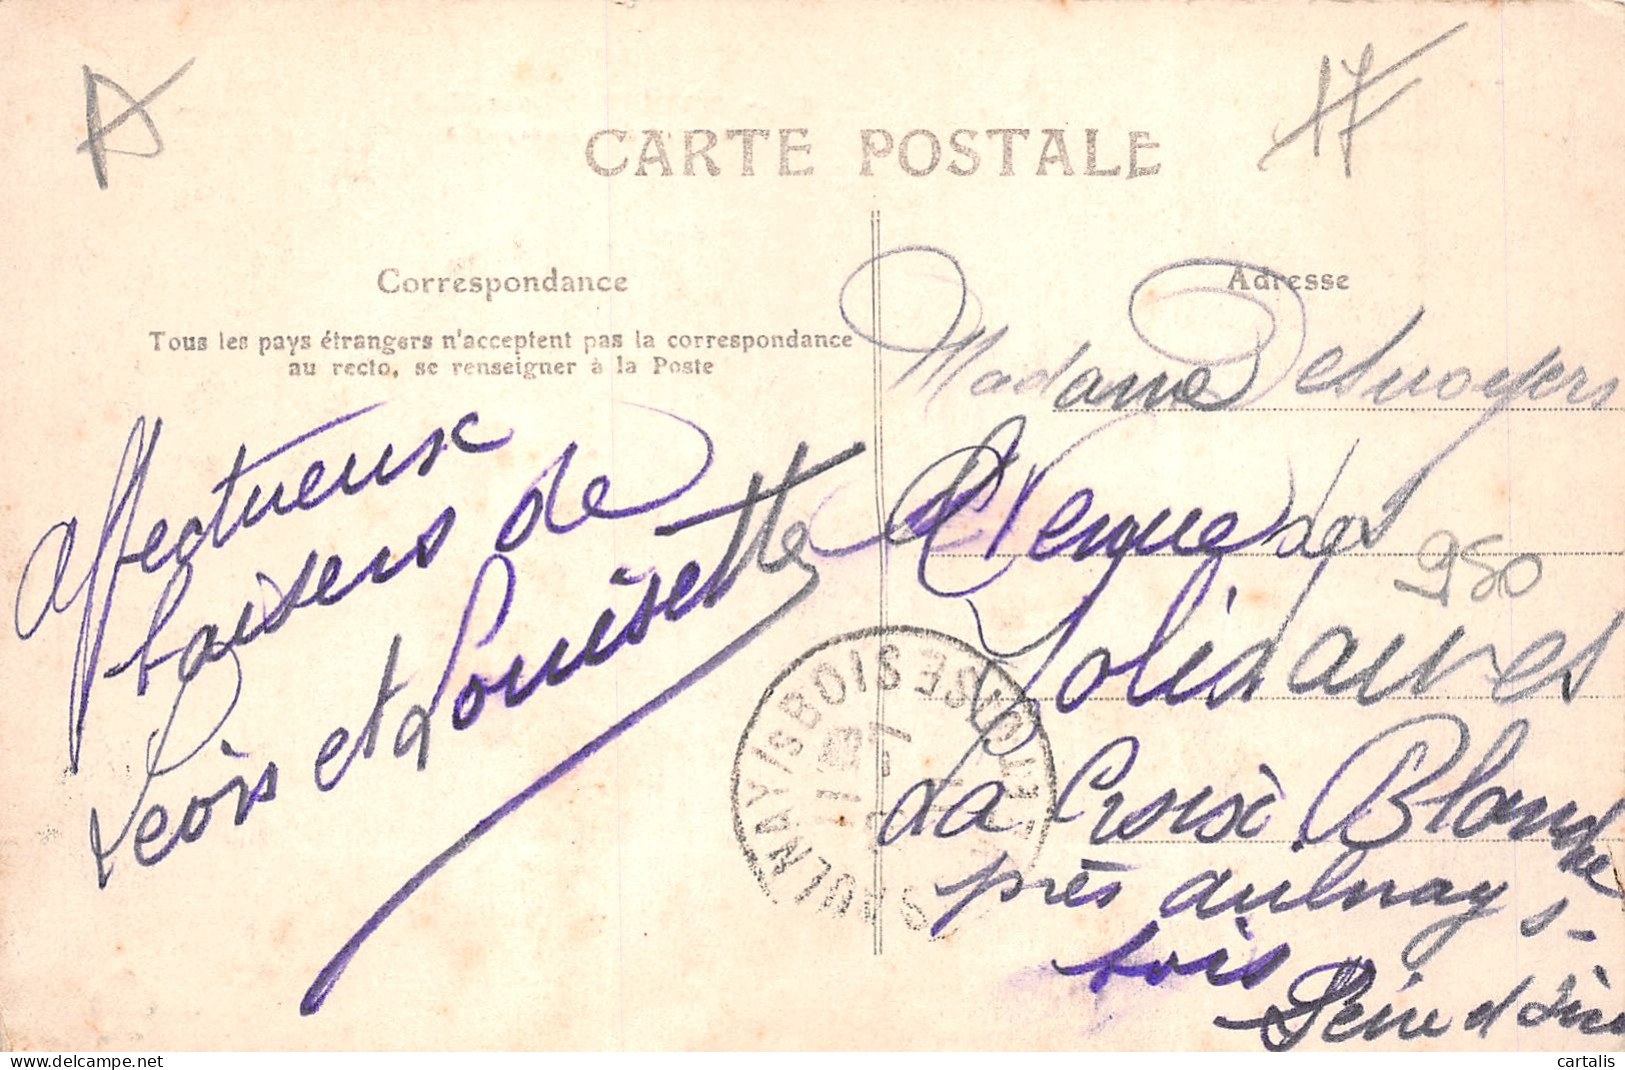 17
CARTE POSTALE
Correspondance
Tous les pays étrangers n'acceptent pas la correspondance
au recto, se renseigner à la Poste
affectueux
baisers de
Leois et Louisette
Adresse
Madame Desnoyers
Avenue des
Solidaires
950
La Croix Blanche
près aulnay s-
bois
Seine et Oise
AULNAY/SBOIS SEINE
cartalis